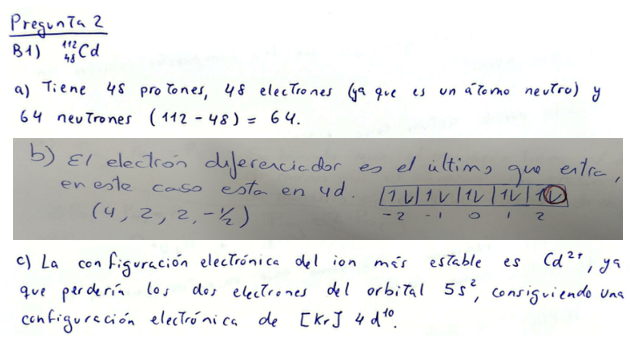 Pregunta 2
B1) ¹¹²₄₈Cd
a) Tiene 48 protones, 48 electrones (ya que es un átomo neutro) y
64 neutrones (112-48) = 64.
b) El electrón diferenciador es el último que entra,
en este caso esta en 4d. 1↓ 1↓ 1↓ 1↓ 1↓
(4, 2, 2, -½) -2 -1 0 1 2
c) La configuración electrónica del ion más estable es Cd²⁺, ya
que perdería los dos electrones del orbital 5s², consiguiendo una
configuración electrónica de [Kr] 4d¹⁰.